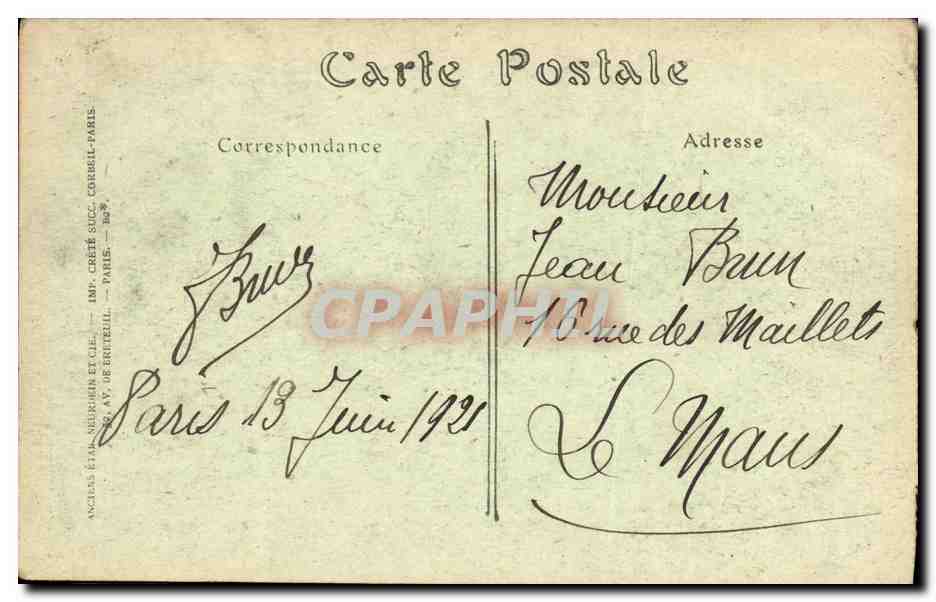 Carte Postale
Correspondance
Adresse
ANCIENS ÉTAB. NEURDEIN ET CIE. — IMP. CRÉTÉ SUCC. CORBEIL-PARIS
52, AV. DE BRETEUIL. — PARIS. —
JBrun
Paris 13 Juin 1921
Monsieur
Jean Brun
16 rue des Maillets
Le Mans
CPAPHIL